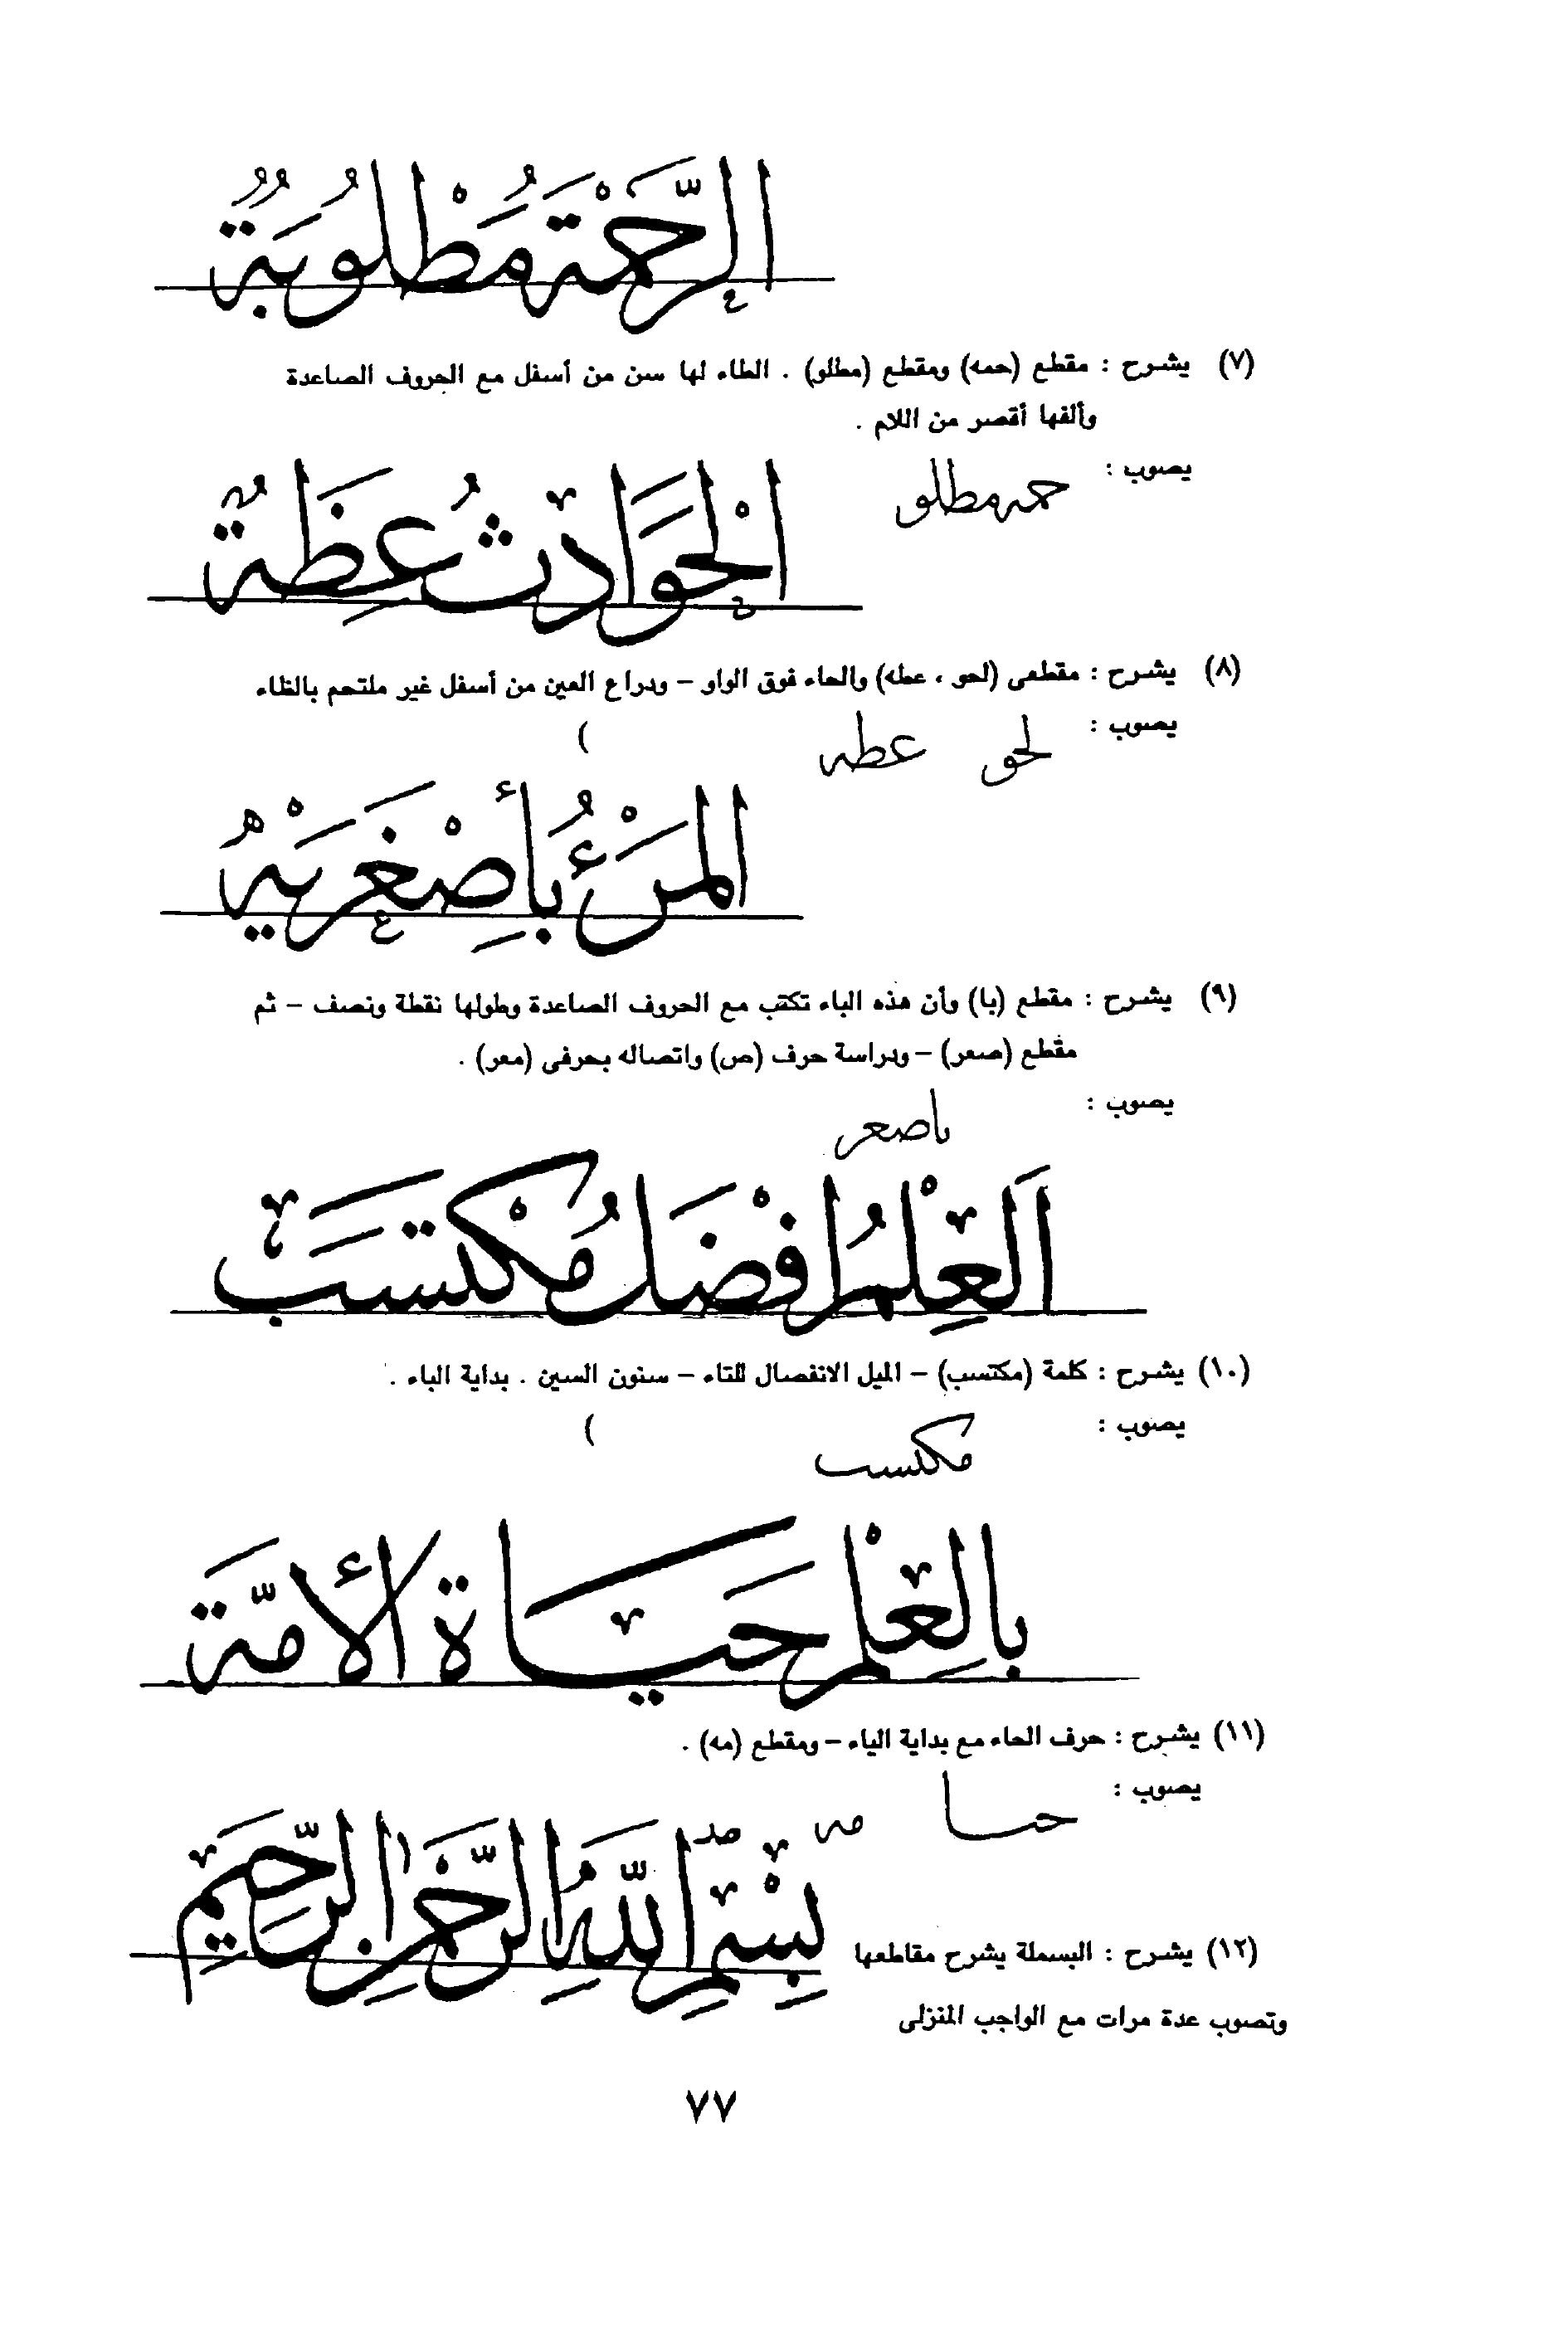 الرَّحْمَةُ مَطْلُوبَةٌ
(٧) يشرح : مقطع (حمه) ومقطع (مطلو) . الطاء لها سن من أسفل مع الحروف الصاعدة
وألفها أقصر من اللام .
يصوب : حمه مطلو
الْحَوَادِثُ عِظَةٌ
(٨) يشرح : مقطعى (لحو ، عطه) والحاء فوق الواو – ودراع العين من أسفل غير ملتحم بالظاء
يصوب : لحو عطه )
المَرْءُ بِأَصْغَرَيْهِ
(٩) يشرح : مقطع (با) وأن هذه الباء تكتب مع الحروف الصاعدة وطولها نقطة ونصف – ثم
مقطع (صعر) – ودراسة حرف (ص) واتصاله بحرفى (معر) .
يصوب : باصعر
اَلعِلْمُ افْضَلُ مُكْتَسَبٍ
(١٠) يشرح : كلمة (مكتسب) – الميل الانفصال للتاء – سنون السين . بداية الباء .
يصوب : مكتسب )
بِالعِلْمِ حَيَاة الأمَّة
(١١) يشرح : حرف الحاء مع بداية الياء – ومقطع (مه) .
يصوب : حىا مه صد
بِسْمِ اللَّهِ الرَّحْمَٰنِ الرَّحِيمِ
(١٢) يشرح : البسملة يشرح مقاطعها
وتصوب عدة مرات مع الواجب المنزلى
٧٧